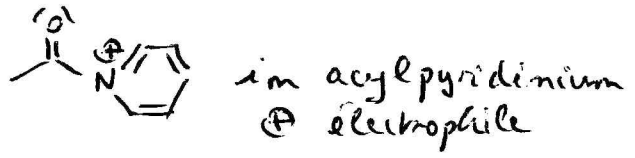 O
⊕
N
ion acylpyridinium
⊕ électrophile